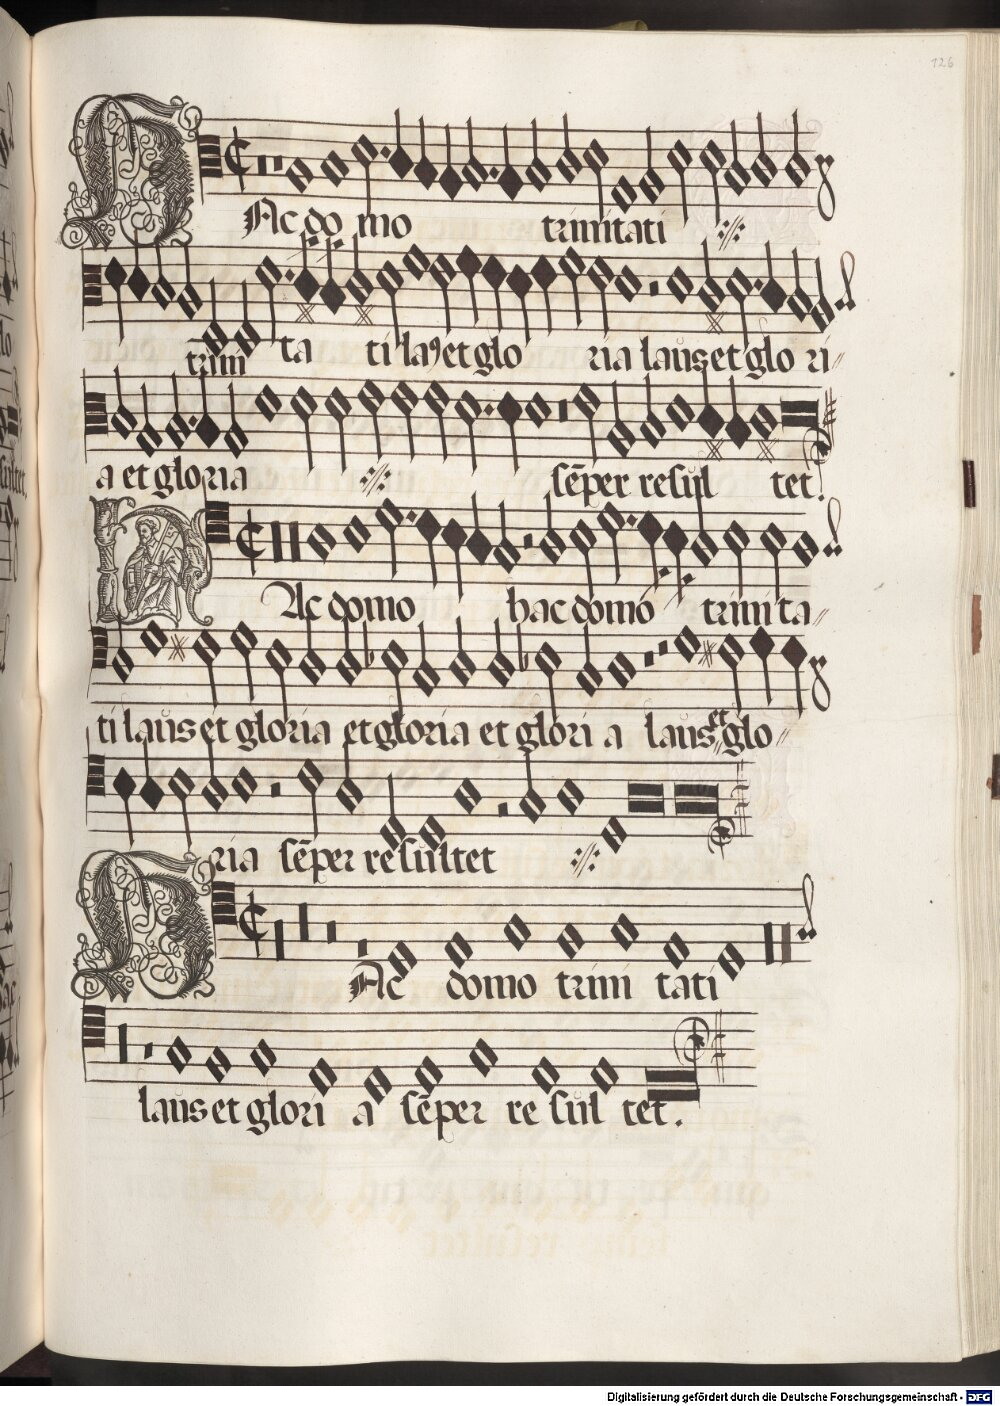 126
HAc do mo trinitati ://:
trini ta ti laꝰ et glo ria laus et glo ri//
a et gloria ://: sēper resul tet.
HAc domo hac domo trinita//
ti laus et gloria et gloria et glori a laus et glo//
ria sēper resultet ://:
HAc domo trini tati
laus et glori a sēper re sul tet.
Digitalisierung gefördert durch die Deutsche Forschungsgemeinschaft - DFG